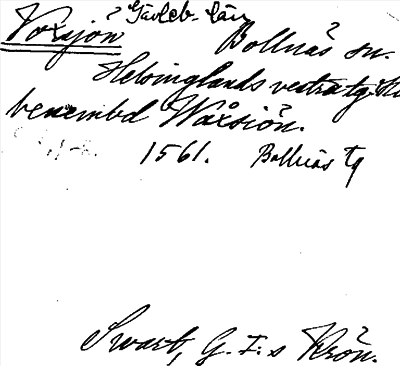 Voxsjön Gävleb. län Bollnäs sn.
Helsinglands vestra tg.
benembd Wåxsiön.
1561. Bollnäs tg
Swart, G. I:s Krön.